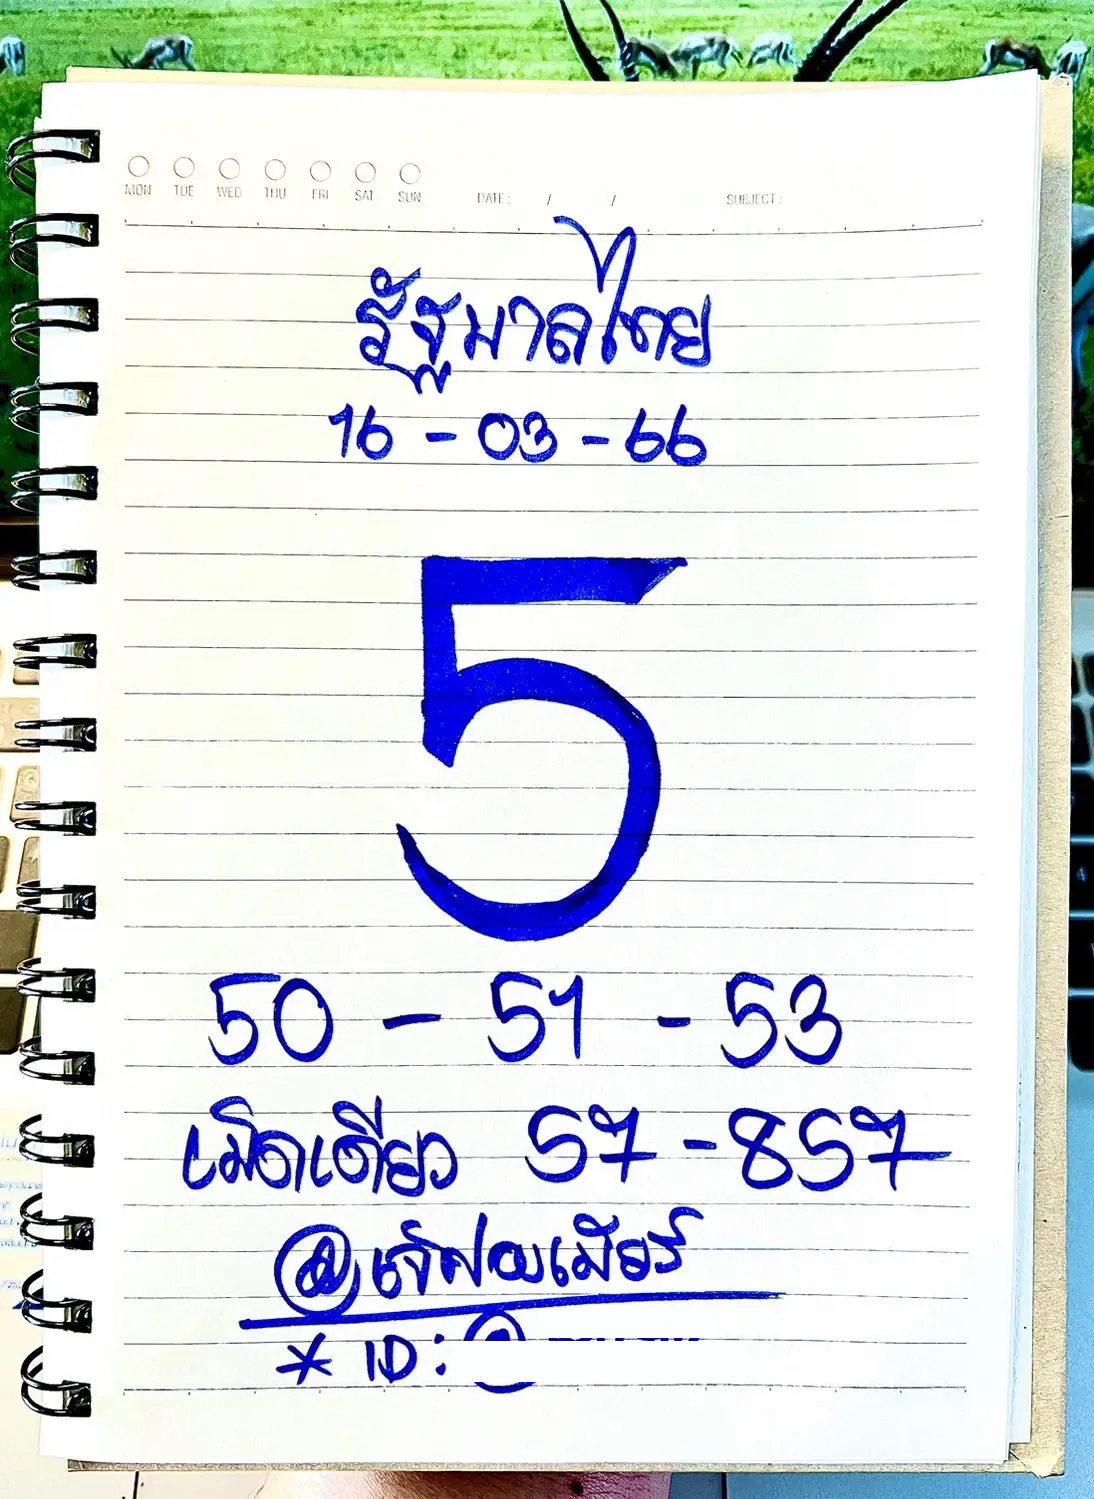 MON TUE WED THU FRI SAT SUN DATE: / / SUBJECT:
รัฐบาลไทย
16 - 03 - 66
5
50 - 51 - 53
เม็ดเดียว 57 - 857
@เจ๊ฝนเมียร์
* ID: